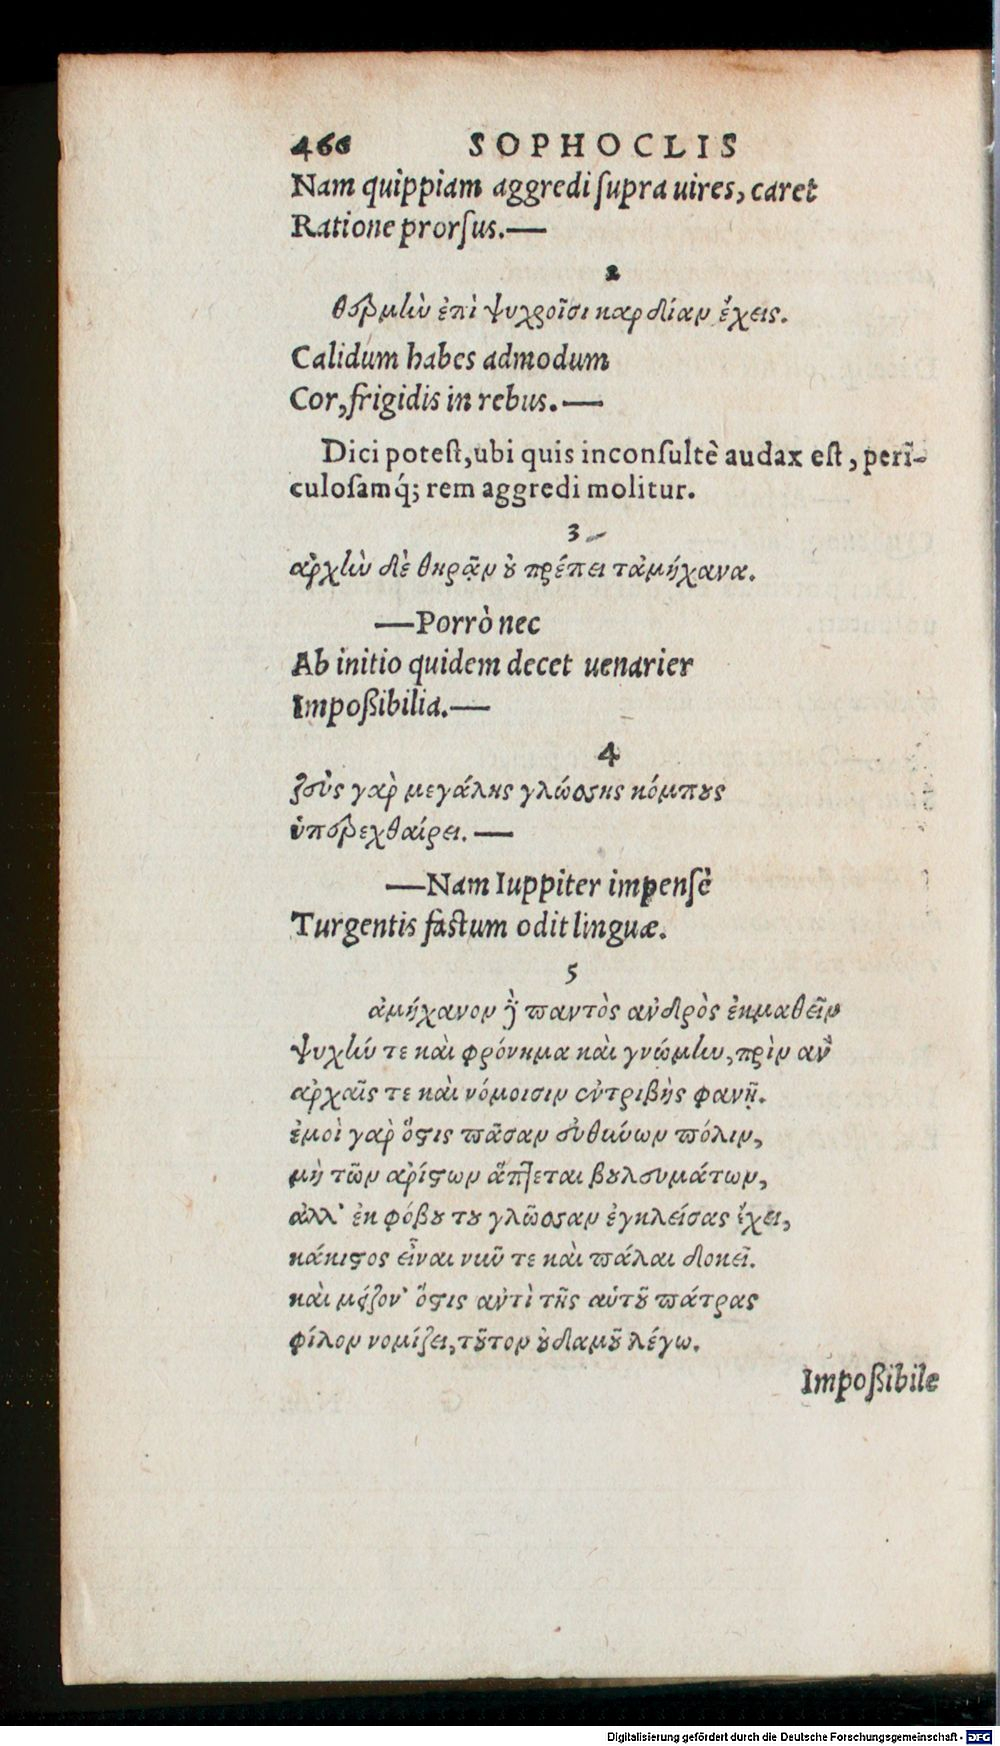 466 SOPHOCLIS
Nam quippiam aggredi ſupra uires, caret
Ratione prorſus.—
2
θερμὴν ἐπὶ ψυχροῖσι καρδίαν ἔχεις.
Calidum habes admodum
Cor, frigidis in rebus.—
Dici poteſt, ubi quis inconſultè audax eſt, peri-
culoſamq́; rem aggredi molitur.
3
ἀρχὴν δὲ θηρᾷν ȣ πρέπει τἀμήχανα.
—Porrò nec
Ab initio quidem decet uenarier
Impoßibilia.—
4
ζεὺς γὰρ μεγάλης γλώσσης κόμπȣς
ὑπερεχθαίρει.—
—Nam Iuppiter impensè
Turgentis faſtum odit linguæ.
5
ἀμήχανον ϳ̀ παντὸς ἀνδρὸς ἐκμαθεῖν
ψυχήν τε καὶ φρόνημα καὶ γνώμην, πρὶν ἂν
ἀρχαῖς τε καὶ νόμοισιν ἐντριβὴς φανῇ.
ἐμοὶ γὰρ ὅςις πᾶσαν εὐθύνων πόλιν,
μὴ τῶν ἀρίςων ἅπτεται βȣλευμάτων,
ἀλλ' ἐκ φόβȣ τȣ γλῶσσαν ἐγκλείσας ἔχει,
κάκιςος εἶναι νῦν τε καὶ πάλαι δοκεῖ.
καὶ μείζον' ὅςις ἀντὶ τῆς αὑτȣ͂ πάτρας
φίλον νομίζει, τȣ͂τον ȣ̓δαμȣ͂ λέγω.
Impoßibile
Digitalisierung gefördert durch die Deutsche Forschungsgemeinschaft - DFG